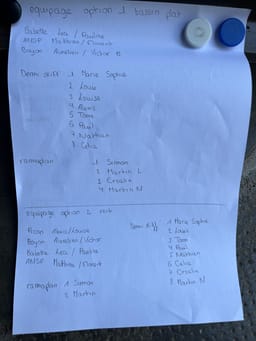 equipage option 1 bassin plat
Babette Lea / Pauline
ANSP Mathieu / Florent
Bayon Aurelien / Victor B
Demi skiff 1 Marie Sophie
2 Louis
3 Louise
4 Alexis
5 Tom
6 Paul
7 Nathan
8 Celia
ramaplan 1 Simon
2 Martin L
3 Croatie
4 Martin N
equipage option 2
Alexis / Louise
Bayon Aurelien / Victor
Babette Lea / Pauline
ANSP Mathieu / Florent
ramaplan 1 Simon
2 Martin
Demi skiff 1 Marie Sophie
2 Louis
3 Tom
4 Paul
5 Nathan
6 Celia
7 Croatie
8 Martin N